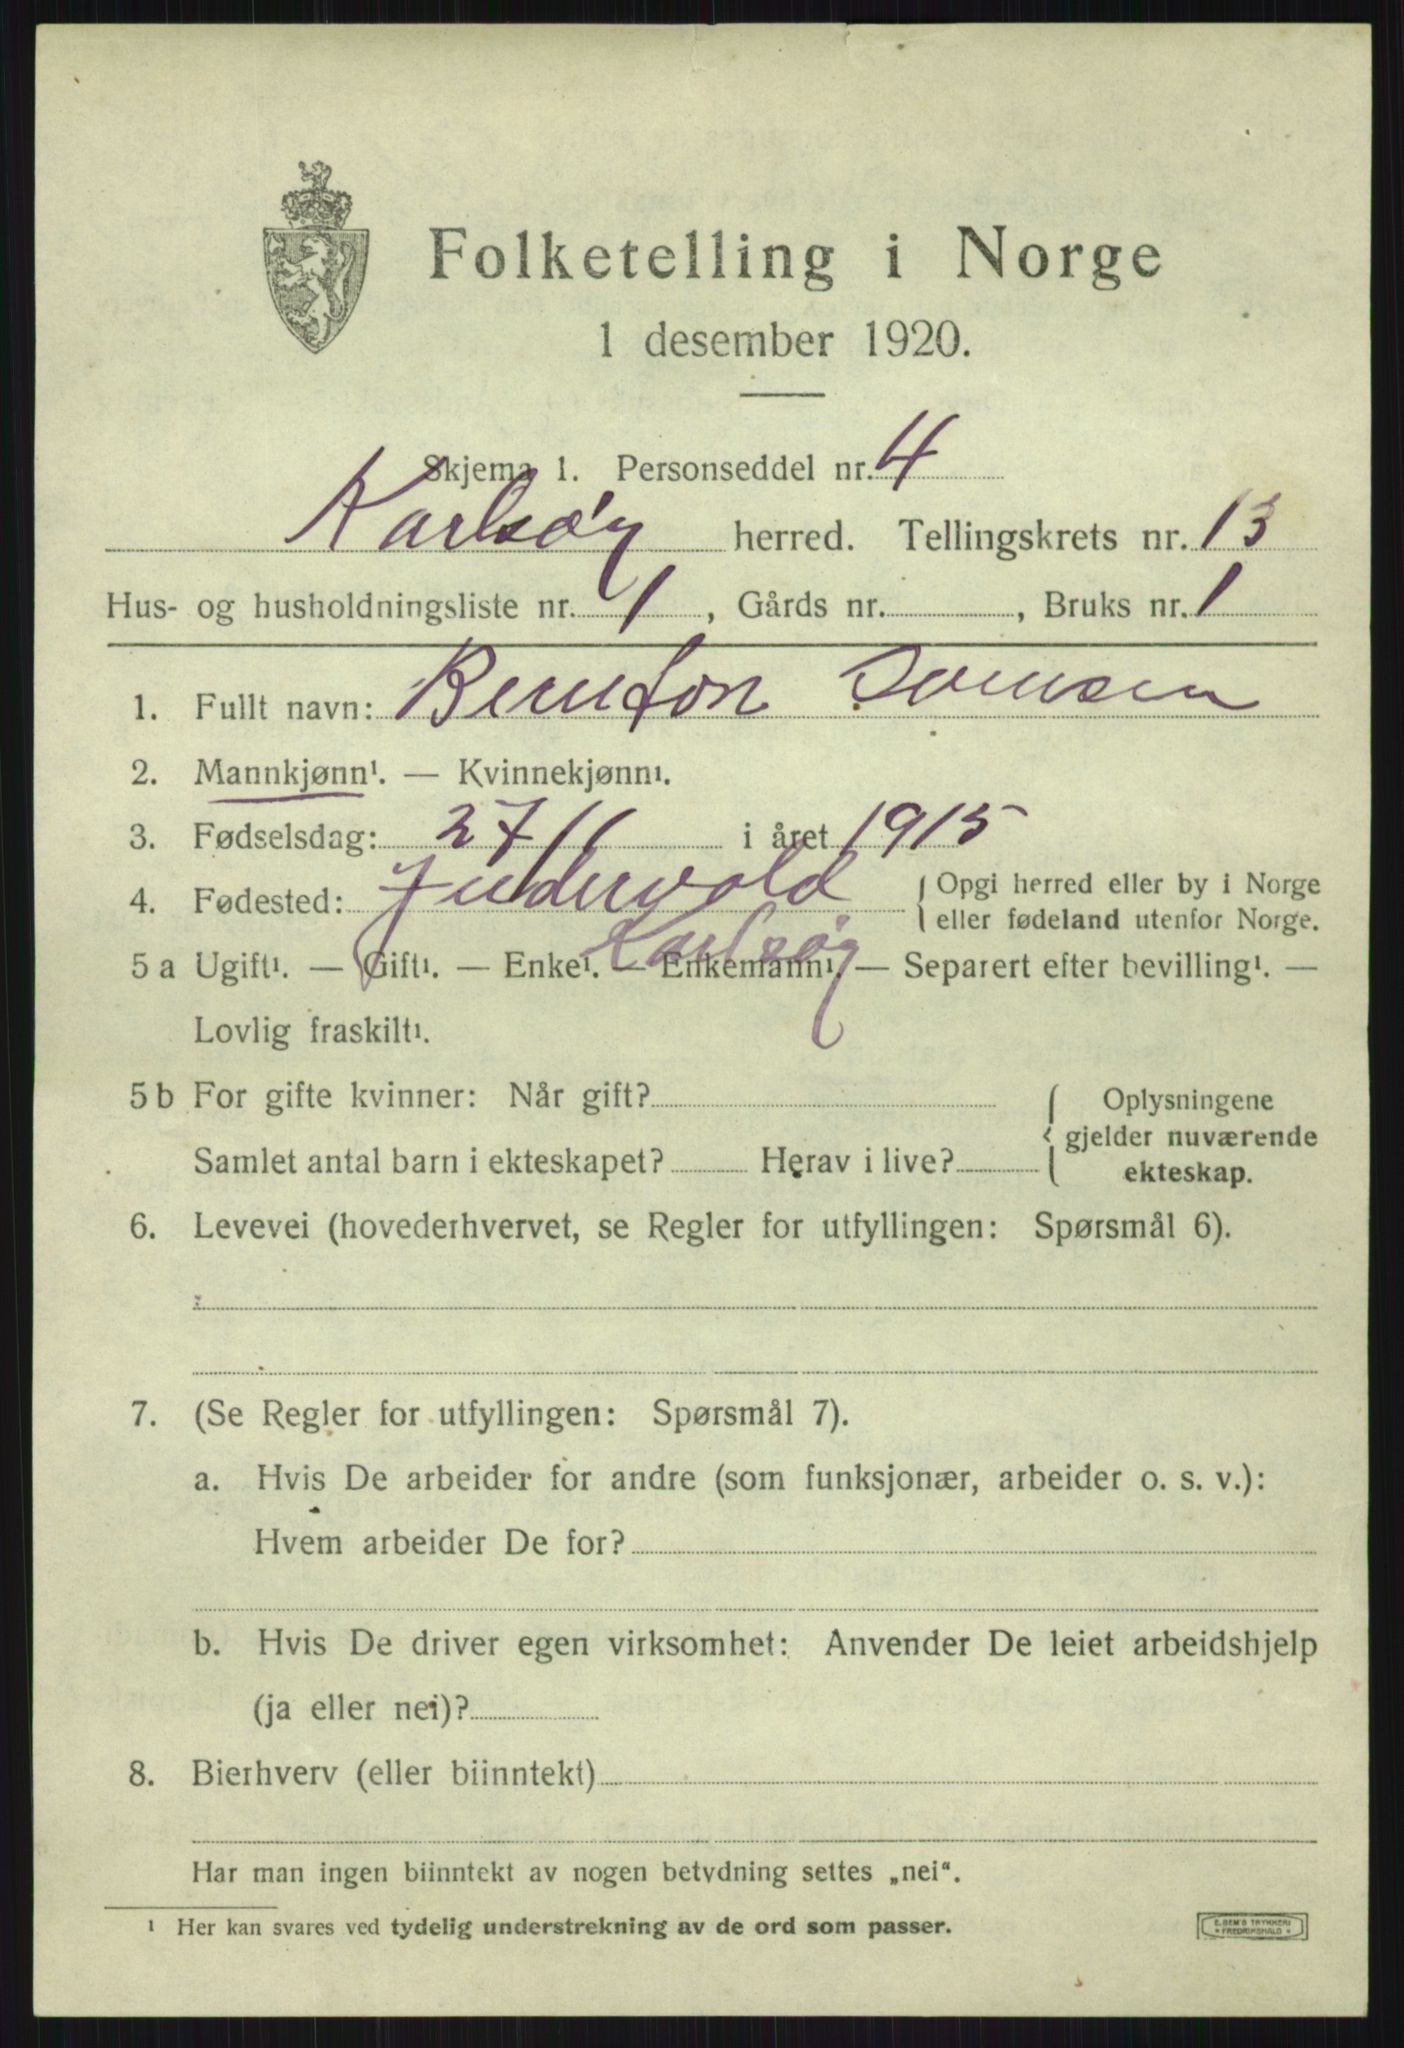 Folketelling i Norge
1 desember 1920.
Skjema 1. Personseddel nr. 4
Karlsøy herred. Tellingskrets nr. 13
Hus- og husholdningsliste nr. 1, Gårds nr. , Bruks nr. 1
1. Fullt navn: Bernton
2. Mannkjønn¹. — Kvinnekjønn¹.
3. Fødselsdag: 27/11 i året 1915
4. Fødested: { Opgi herred eller by i Norge
eller fødeland utenfor Norge.
Karlsøy
5 a Ugift¹. — Gift¹. — Enke¹. — Enkemann¹. — Separert efter bevilling¹. —
Lovlig fraskilt¹.
5 b For gifte kvinner: Når gift?
Samlet antal barn i ekteskapet? Herav i live?
{ Oplysningene
gjelder nuværende
ekteskap.
6. Levevei (hovederhvervet, se Regler for utfyllingen: Spørsmål 6).
7. (Se Regler for utfyllingen: Spørsmål 7).
a. Hvis De arbeider for andre (som funksjonær, arbeider o. s. v.):
Hvem arbeider De for?
b. Hvis De driver egen virksomhet: Anvender De leiet arbeidshjelp
(ja eller nei)?
8. Bierhverv (eller biinntekt)
Har man ingen biinntekt av nogen betydning settes „nei“.
¹ Her kan svares ved tydelig understrekning av de ord som passer.
E. SEM'S TRYKKERI
* FREDRIKSHALD *